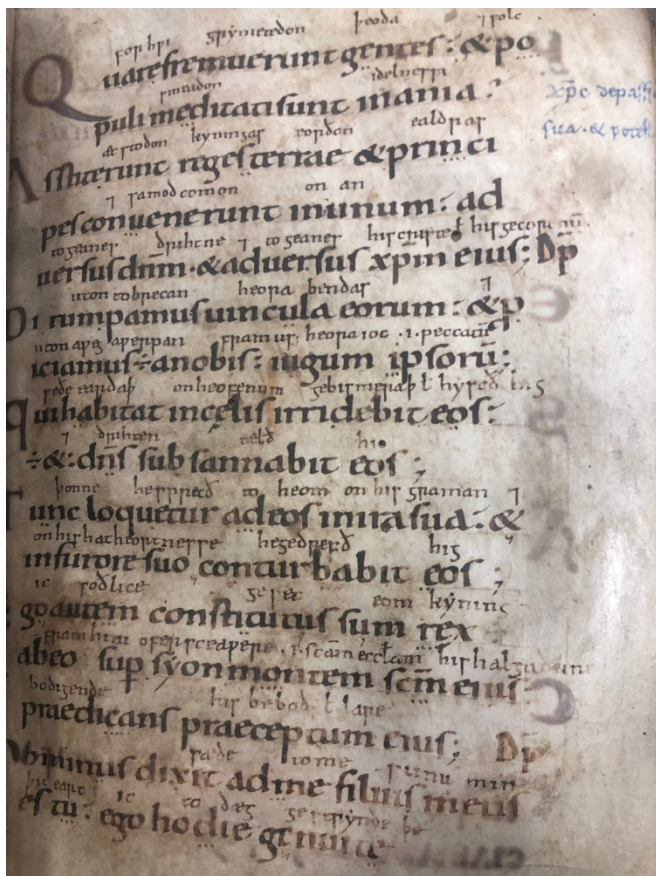 for hpi grymetedon þeoda ⁊ folc
Quare fremuerunt gentes: & po
smeadon idelnessi
puli meditati sunt inania?
xp̄c de passi
ætstodon kyningas eorðan ealdras
sua · & potes
Assiterunt reges terrae & princi
⁊ samod comon on an
pes conuenerunt in unum: ad
togeanes drihtne ⁊ togeanes his criste ł his gecorenum
uersus dn̄m · & aduersus xp̄m eius; Dp̄
uton tobrecan heora bendas
Dirumpamus uincula eorum: & p
uton apeg aperpan fram us heora ioc .i. peccati
iciamus÷ a nobis: iugum ipsorū;
seðe eardaþ on heofenum gebismeraþ ł hyrpð hig
Qui habitat in cęlis irridebit eos:
⁊ drihten telð hi
÷&: dn̄s subsannabit eos;
þonne he spricð to heom on his graman ⁊
Tunc loquetur ad eos in ira sua: &
on his hatheortnesse he gedrefð hig
in furore suo conturbabit eos;
ic soðlice geset eom kyning
go autem constitutus sum rex
fram him ofer sceapere .i. scām eccłam his halgan
ab eo sup̄ syon montem scm̄ eius
bodigende his bebod ł lare
praedicans praeceptum eius; Dp̄
sæde to me sunu min
Dominus dixit ad me filius meus
þu eart ic to dæg gestrynde þe
es tu: ego hodie genui te